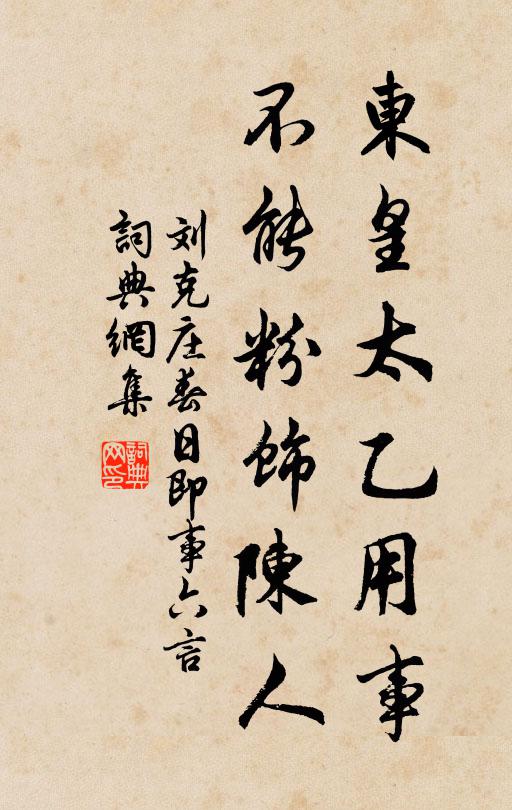 東皇太乙用事
不能粉飾陳人
刘克庄春日即事六言
詞典網集
詞典网印